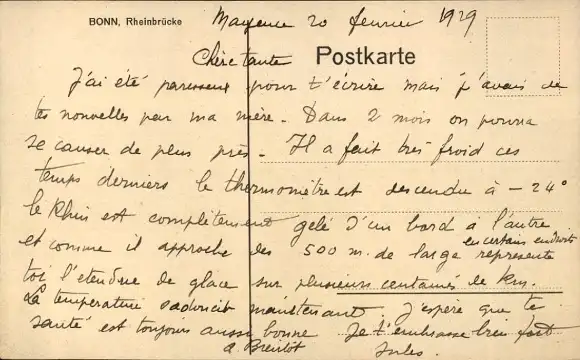 BONN, Rheinbrücke
Mayence 20 fevrier 1929
Chère tante
Postkarte
J'ai été paresseux pour t'écrire mais j'avais de
tes nouvelles par ma mère. Dans 2 mois on pourra
se causer de plus près. Il a fait très froid ces
temps derniers le thermomètre est descendu à - 24°
le Rhin est complètement gelé d'un bord à l'autre
et comme il approche des 500 m. de large en certains endroits represente
toi l'etendue de glace sur plusieurs centaines de km.
La temperature s'adoucit maintenant j'espère que ta
santé est toujours aussi bonne Je t'embrasse bien fort
a Bientôt Jules.